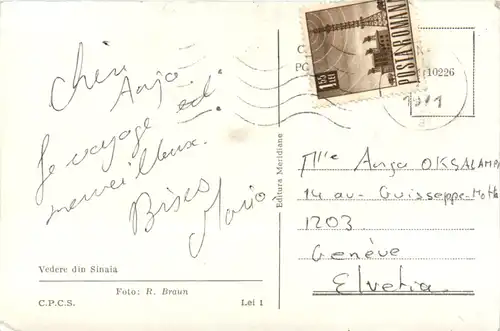 Chère
Anja
Le voyage est
merveilleux.
Bises
Mario
Vedere din Sinaia
Foto: R. Braun
C.P.C.S.
Lei 1
Editura Meridiane
POSTA ROMANA
1,35 LEI
C.
10226
Mlle Anja OKSALAMPI
14 av. Guisseppe-Motta
1203
Genève
Elvetia.